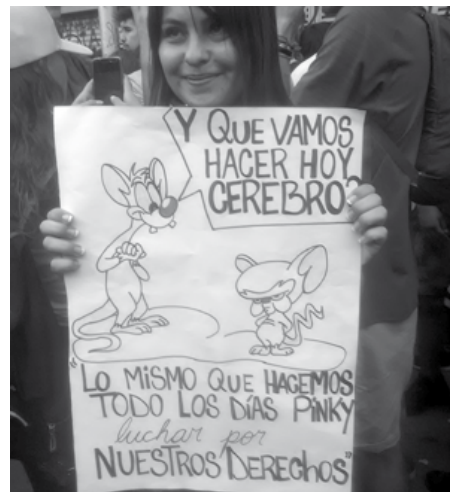 Y QUE VAMOS
HACER HOY
CEREBRO?
"LO MISMO QUE HACEMOS
TODO LOS DÍAS PINKY
luchar por
NUESTROS DERECHOS"